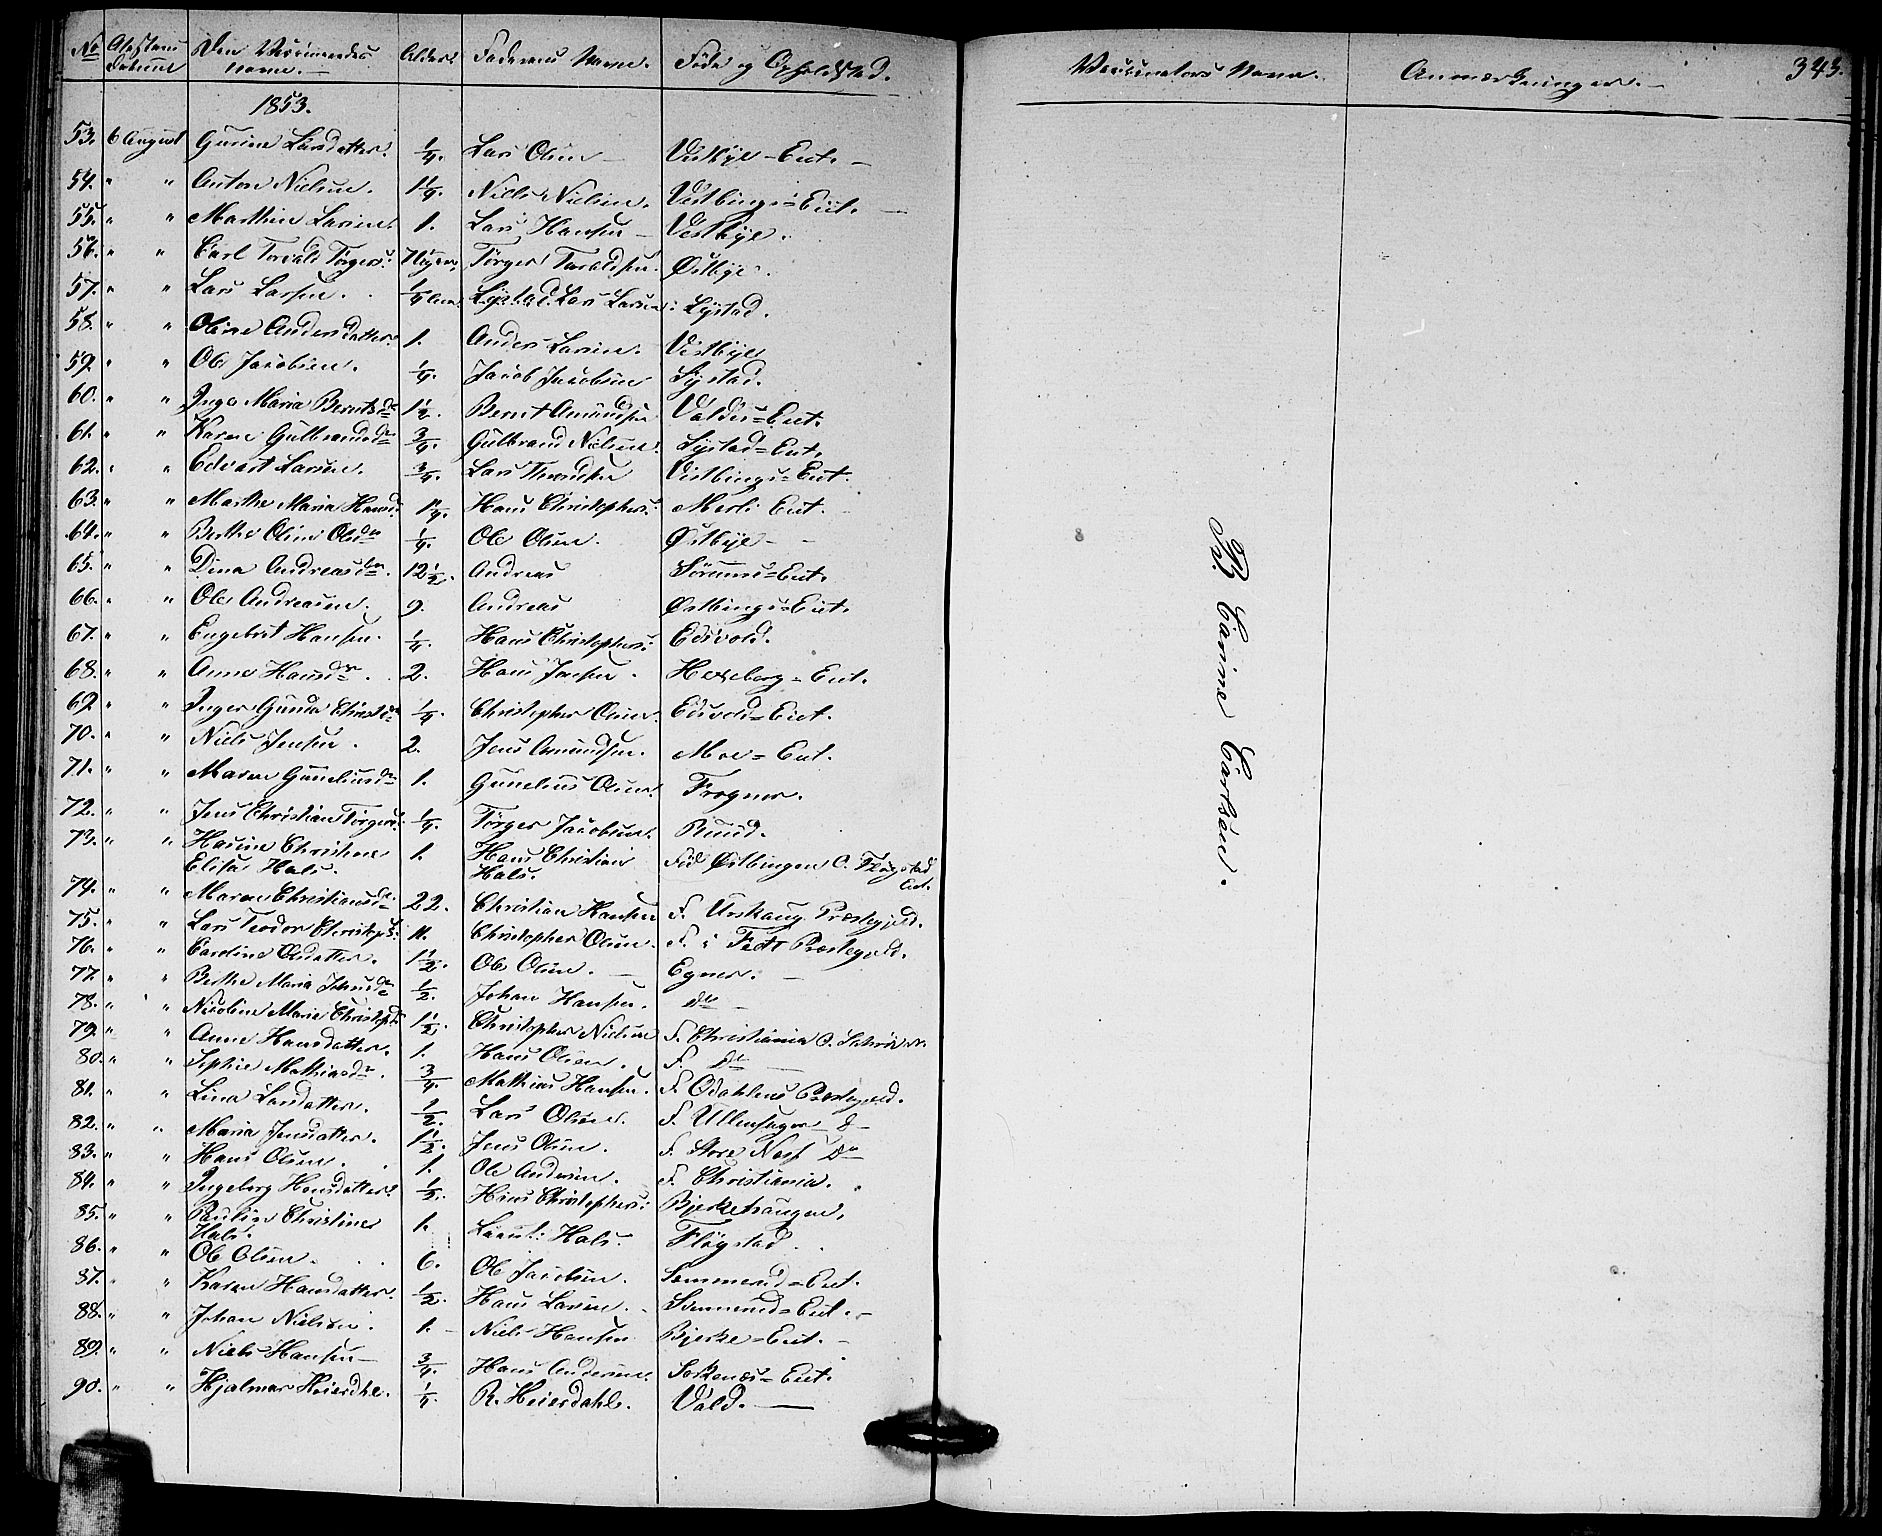 No Attestens Datum Den Vaccineredes Navn. Alder. Faderens Navn. Føde og Opholdsted. Vaccinators Navn. Anmærkninger. 343.
1853.
53. 6 August Gurine Larsdatter. 1/4. Lars Olsen Vestbye=Eiet.
54. " " Anton Nielsen. 1 1/4. Niels Nielsen. Vestbinge=Eiet.
55. " " Marthin Larsen. 1. Lars Hansen Vestbye.
56. " " Carl Torvald Törgers: Törger Taraldsen. Østbye.
57. " " Lars Larsen. 1/4 Lystad. Lars Larsen: Lystad.
58. " " Oline Andersdatter. 1. Anders Larsen. Vestbye
59. " " Ole Jacobsen. 1/4. Jacob Jacobsen Lystad.
60. " " Inga Maria Berntsdr 1 1/2. Bernt Amundsen Valdes=Eiet.
61. " " Karen Gulbrandsdr 3/4. Gulbrand Nielsen. Lystad=Eiet.
62. " " Edvart Larsen. 3/4. Lars Throndsen Vestbinge=Eiet.
63. " " Marthe Maria Hansd. 1 1/4. Hans Christophers: Merli Eiet.
64. " " Berthe Oline Olsdr 1/4. Ole Olsen. Østbye
65. " " Dina Andreasdr. 12 1/2. Andreas Sørums=Eiet.
66. " " Ole Andreasen. 9. Andreas Østbings=Eiet.
67. " " Engebret Hansen. 1/4. Hans Christophers: Edsvold.
68. " " Anne Hansdr. 2. Hans Jensen. Hexeberg=Eiet.
69 " " Inger Gunda Christdr 1/4. Christopher Olsen. Edsvold=Eiet.
70. " " Niels Jensen. 2. Jens Amundsen. Moe=Eiet.
71. " " Maren Guneliusdr 1. Gunelius Olsen. Frogner.
72. " " Jens Christian Törgers: 1/4. Törger Jacobsen. Ruud.
73. " " Hansine Christine 1. Hans Christian Fød Østbingen O. Fløgstad
Elise Hals. Hals. Eiet.
74. " " Maren Christiansdr. 22. Christian Hansen F. Urskaug Præstegjeld.
75. " " Lars Teodor Christoph: 11. Christopher Olsen. F. i Fedt Præstegjeld.
76. " " Caroline Olsdatter. 1 1/2. Ole Olsen. Egner.
77. " " Berthe Maria Johnsdr 1/2. Johan Hansen. do
78. " " Nicoline Marie Christophd. 1 1/2. Christopher Nielsen F. Christiania O.
79. " " Anne Hansdatter. 1. Hans Olsen. F. do
80. " " Sophie Mathiasdr. 3/4. Mathias Hansen. F. Odahlens Præstegjeld.
81. " " Lina Larsdatter. 1/2. Lars Olsen. F. Ullensager D
82. " " Maria Jensdatter. 1 1/2. Jens Olsen. F. Store Næs Do
83. " " Hans Olsen. 1. Ole Andersen. F. Christiania.
84. " " Ingeborg Hansdatter. 1/2. Hans Christophers: Bjerkehaugen.
85. " " Paulin Christine 1. Lieut: Hals. Fløgstad.
Hals.
86. " " Ole Olsen. 6. Ole Jacobsen. Sommerud=Eiet.
87. " " Karen Hansdatter. 1/2. Hans Larsen. Sommerud=Eiet.
88. " " Johan Nielsen. 1. Niels Hansen Bjerke=Eiet.
89. " " Niels Hansen 3/4. Hans Andersen. Eiet.
90. " " Hjalmar Heierdhl. 1/4. R. Heierdahl. Vald.
Carine Carlsen.